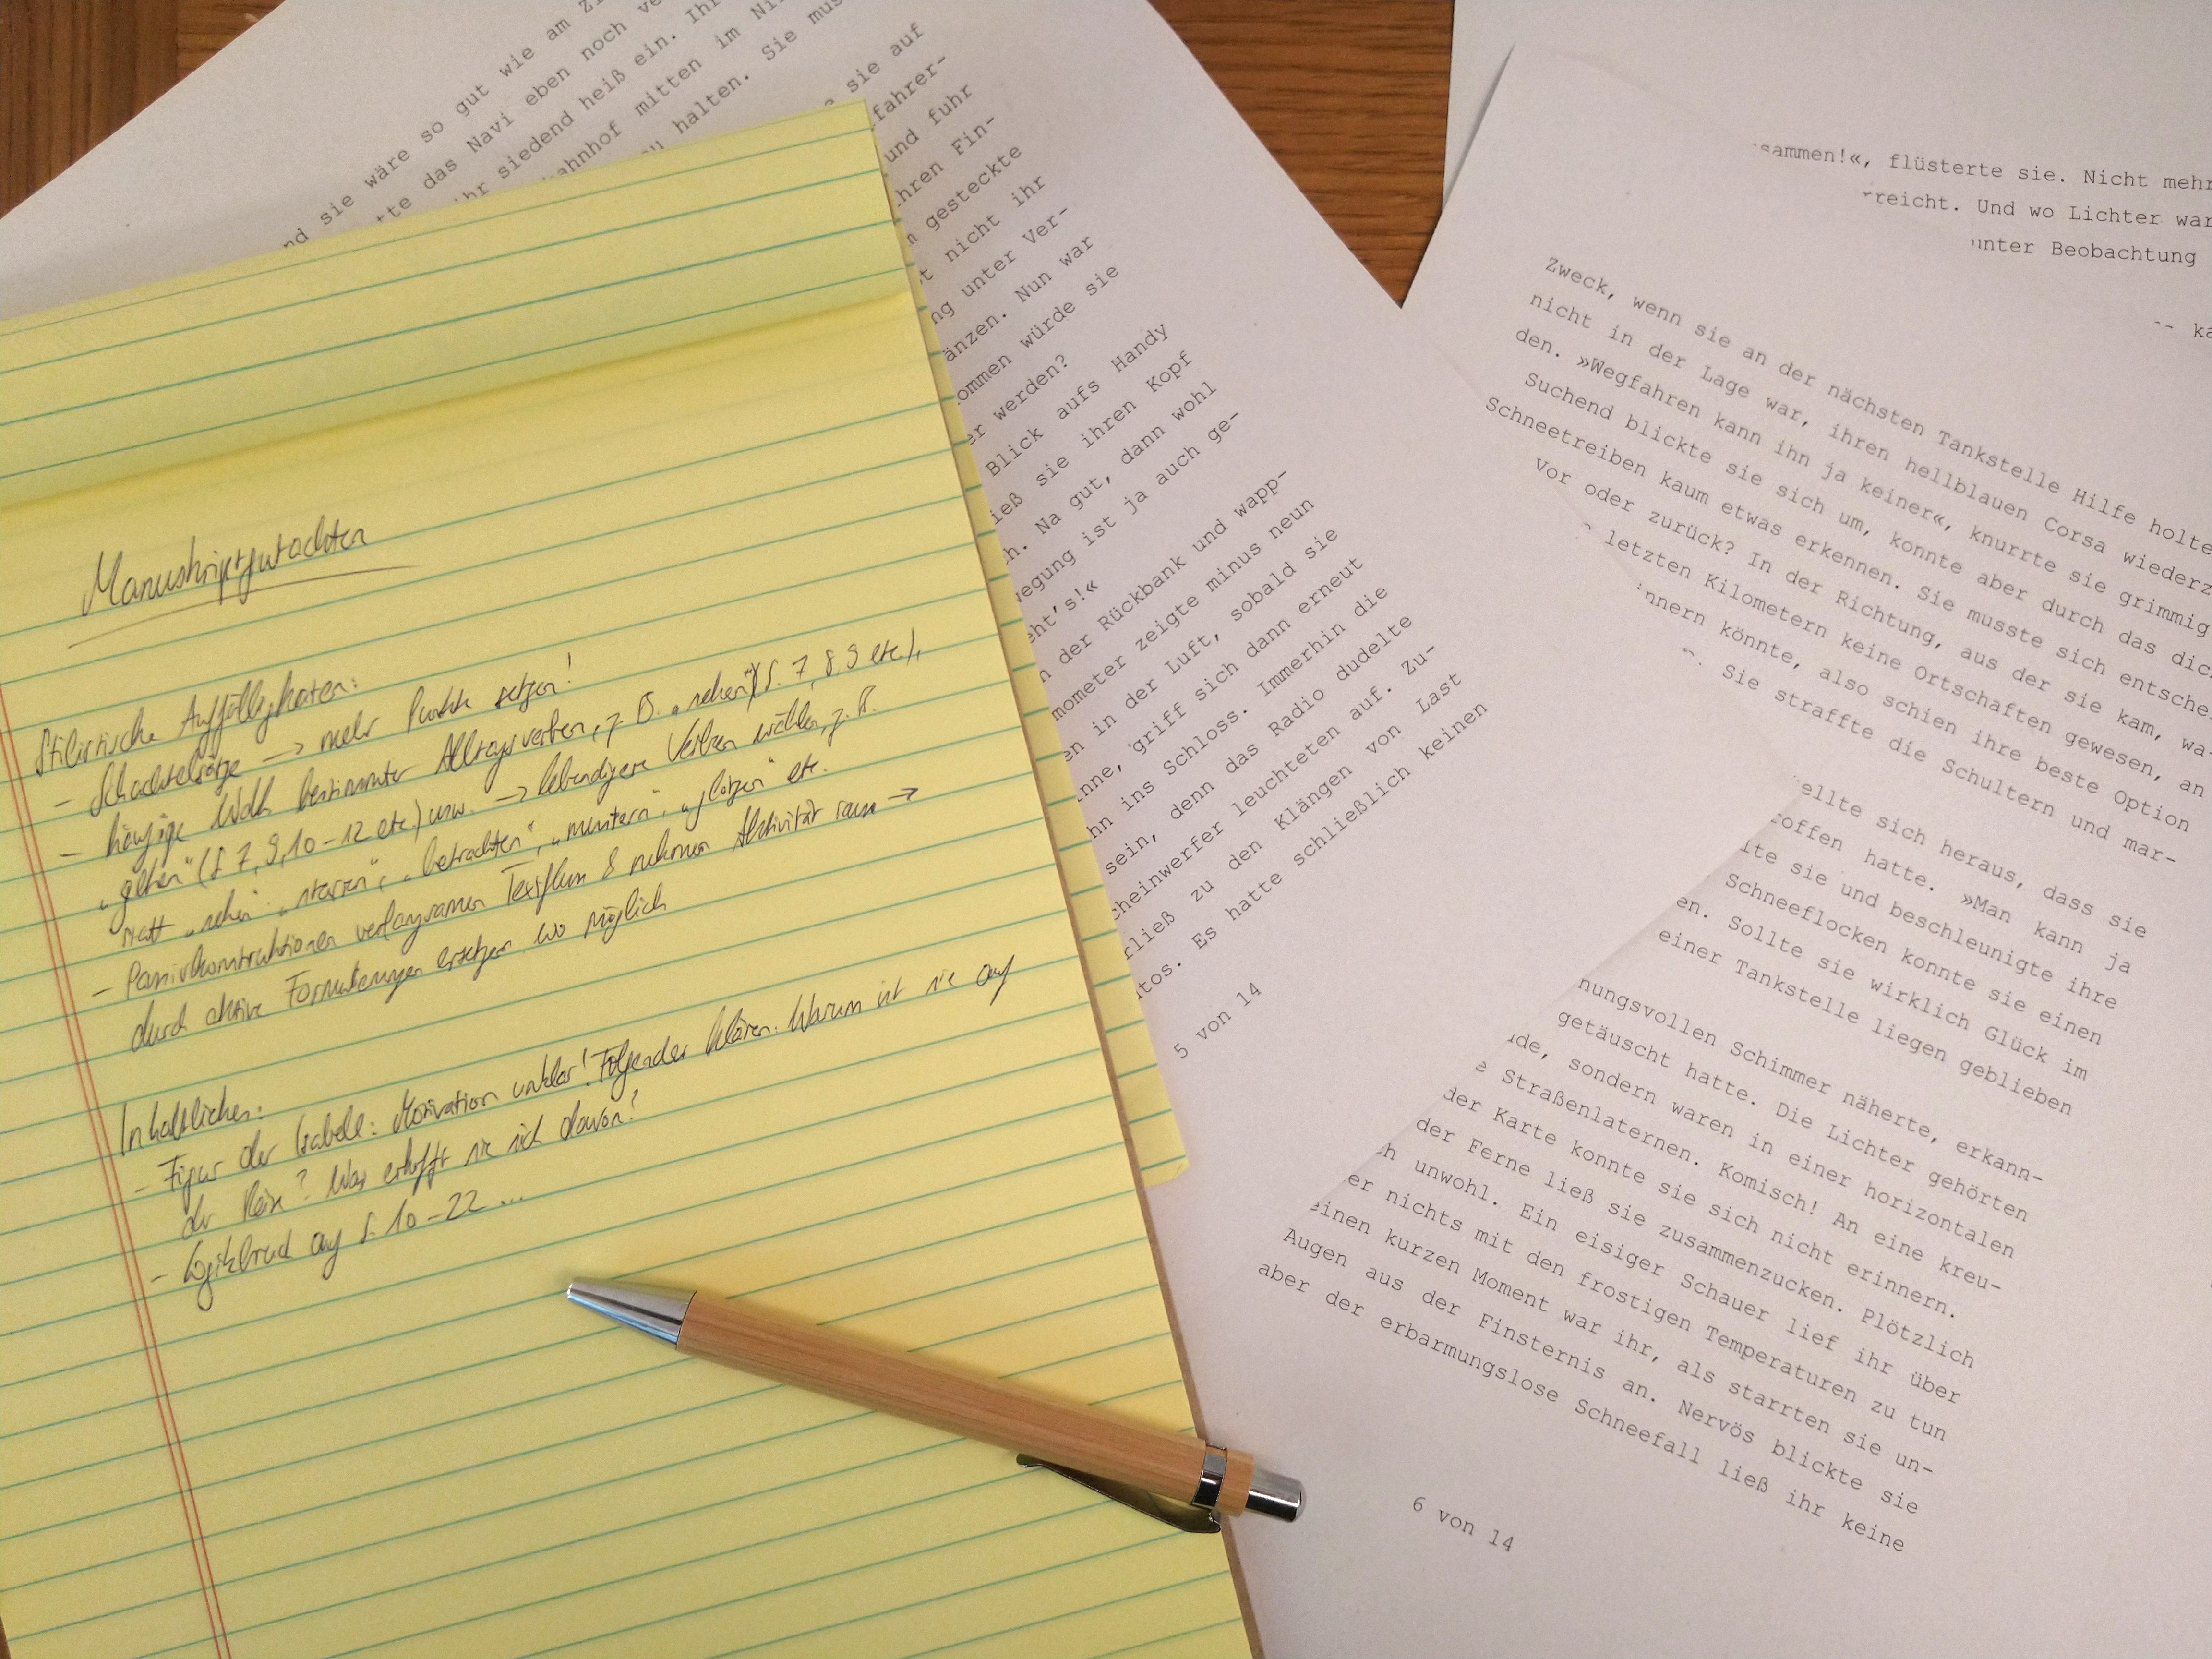 Manuskriptgutachten
Stilistische Auffälligkeiten:
- Schachtelsätze → mehr Punkte setzen!
- häufige Wahl bestimmter Alltagsverben, z. B. „sehen" (S. 7, 8 9 etc.),
„gehen" (S 7, 9, 10-12 etc.) usw. → lebendigere Verben wählen, z. B.
statt „sehen" „starren", „betrachten", „mustern", „glotzen" etc.
- Passivkonstruktionen verlangsamen Textfluss & nehmen Aktivität raus →
durch aktive Formulierungen ersetzen wo möglich
Inhaltliches:
- Figur der Isabell: Motivation unklar! Folgendes klären: Warum ist sie auf
der Reise? Was erhofft sie sich davon?
- Logikbruch auf S. 10-22 ...
sie wäre so gut wie am
das Navi eben noch
siedend heiß ein.
mitten im
halten. Sie
sie auf
fahrer-
und fuhr
Fin-
gesteckte
nicht ihr
unter Ver-
Nun war
würde sie
werden?
Blick aufs Handy
sie ihren Kopf
Na gut, dann wohl
ist ja auch ge-
der Rückbank und wapp-
zeigte minus neun
in der Luft, sobald sie
griff sich dann erneut
ins Schloss. Immerhin die
sein, denn das Radio dudelte
leuchteten auf. Zu-
zu den Klängen von Last
Es hatte schließlich keinen
5 von 14
flüsterte sie. Nicht mehr
Und wo Lichter
Beobachtung
Zweck, wenn sie an der nächsten Tankstelle Hilfe holte
nicht in der Lage war, ihren hellblauen Corsa
den. »Wegfahren kann ihn ja keiner«, knurrte sie grimmig
Suchend blickte sie sich um, konnte aber durch das
Schneetreiben kaum etwas erkennen. Sie musste sich
Vor oder zurück? In der Richtung, aus der sie kam, wa-
letzten Kilometern keine Ortschaften gewesen, an
könnte, also schien ihre beste Option
Sie straffte die Schultern und mar-
sich heraus, dass sie
hatte. »Man kann ja
sie und beschleunigte ihre
Schneeflocken konnte sie einen
Sollte sie wirklich Glück im
einer Tankstelle liegen geblieben
Schimmer näherte, erkann-
getäuscht hatte. Die Lichter gehörten
sondern waren in einer horizontalen
Straßenlaternen. Komisch! An eine kreu-
der Karte konnte sie sich nicht erinnern.
der Ferne ließ sie zusammenzucken. Plötzlich
unwohl. Ein eisiger Schauer lief ihr über
nichts mit den frostigen Temperaturen zu tun
einen kurzen Moment war ihr, als starrten sie un-
Augen aus der Finsternis an. Nervös blickte sie
aber der erbarmungslose Schneefall ließ ihr keine
6 von 14